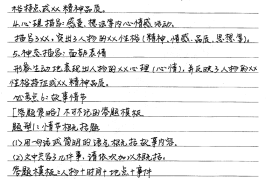 格特点或XX精神品质。
4.心理描写:感受、想法等内心情感活动。
描写了XX,突出了人物的XX性格(精神、情感、品质、思想等)。
5.神态描写:面部表情
形象生动地表现出人物的XX心理(心情),并反映了人物的XX
性格特征或XX精神品质。
必考点6:故事情节
[答题策略]不可不记的答题模板
题型1:情节概括题
(1)用一句话或简明的语言概括故事内容。
(2)文中共写了几件事,请依次加以概括。
答题模板:人物+时间+地点+事件